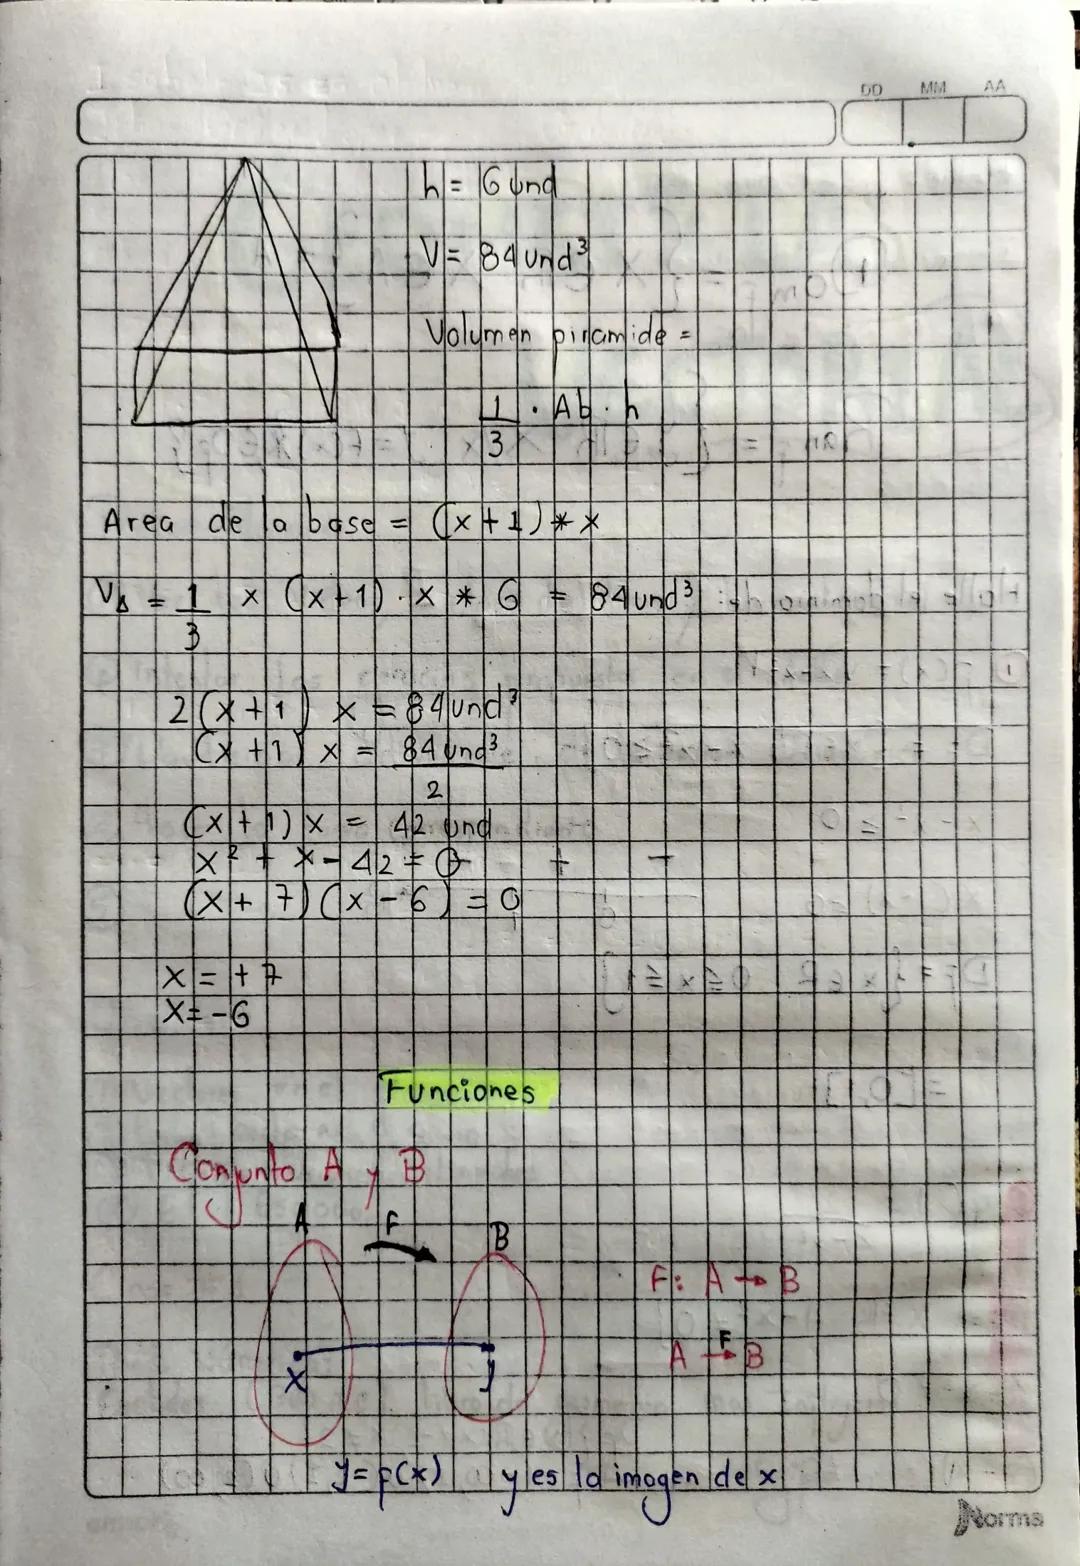 DD MM AA
h = 6 und
V = 84 und³
Volumen piramide =
1/3 · Ab · h
Area de la base = (x + 1) * x
V△ = 1/3 x (x+1) · x * 6 = 84 und³
2(x + 1) x = 84 und³
(x + 1) x = 84 und³/2
(x + 1) x = 42 und
x² + x - 42 = 0
(x + 7)(x - 6) = 0
x = + 7
x = - 6
Funciones
Conjunto A y B
A F B
F: A → B
A F→ B
x y
y = f(x) y es la imagen de x
Norma